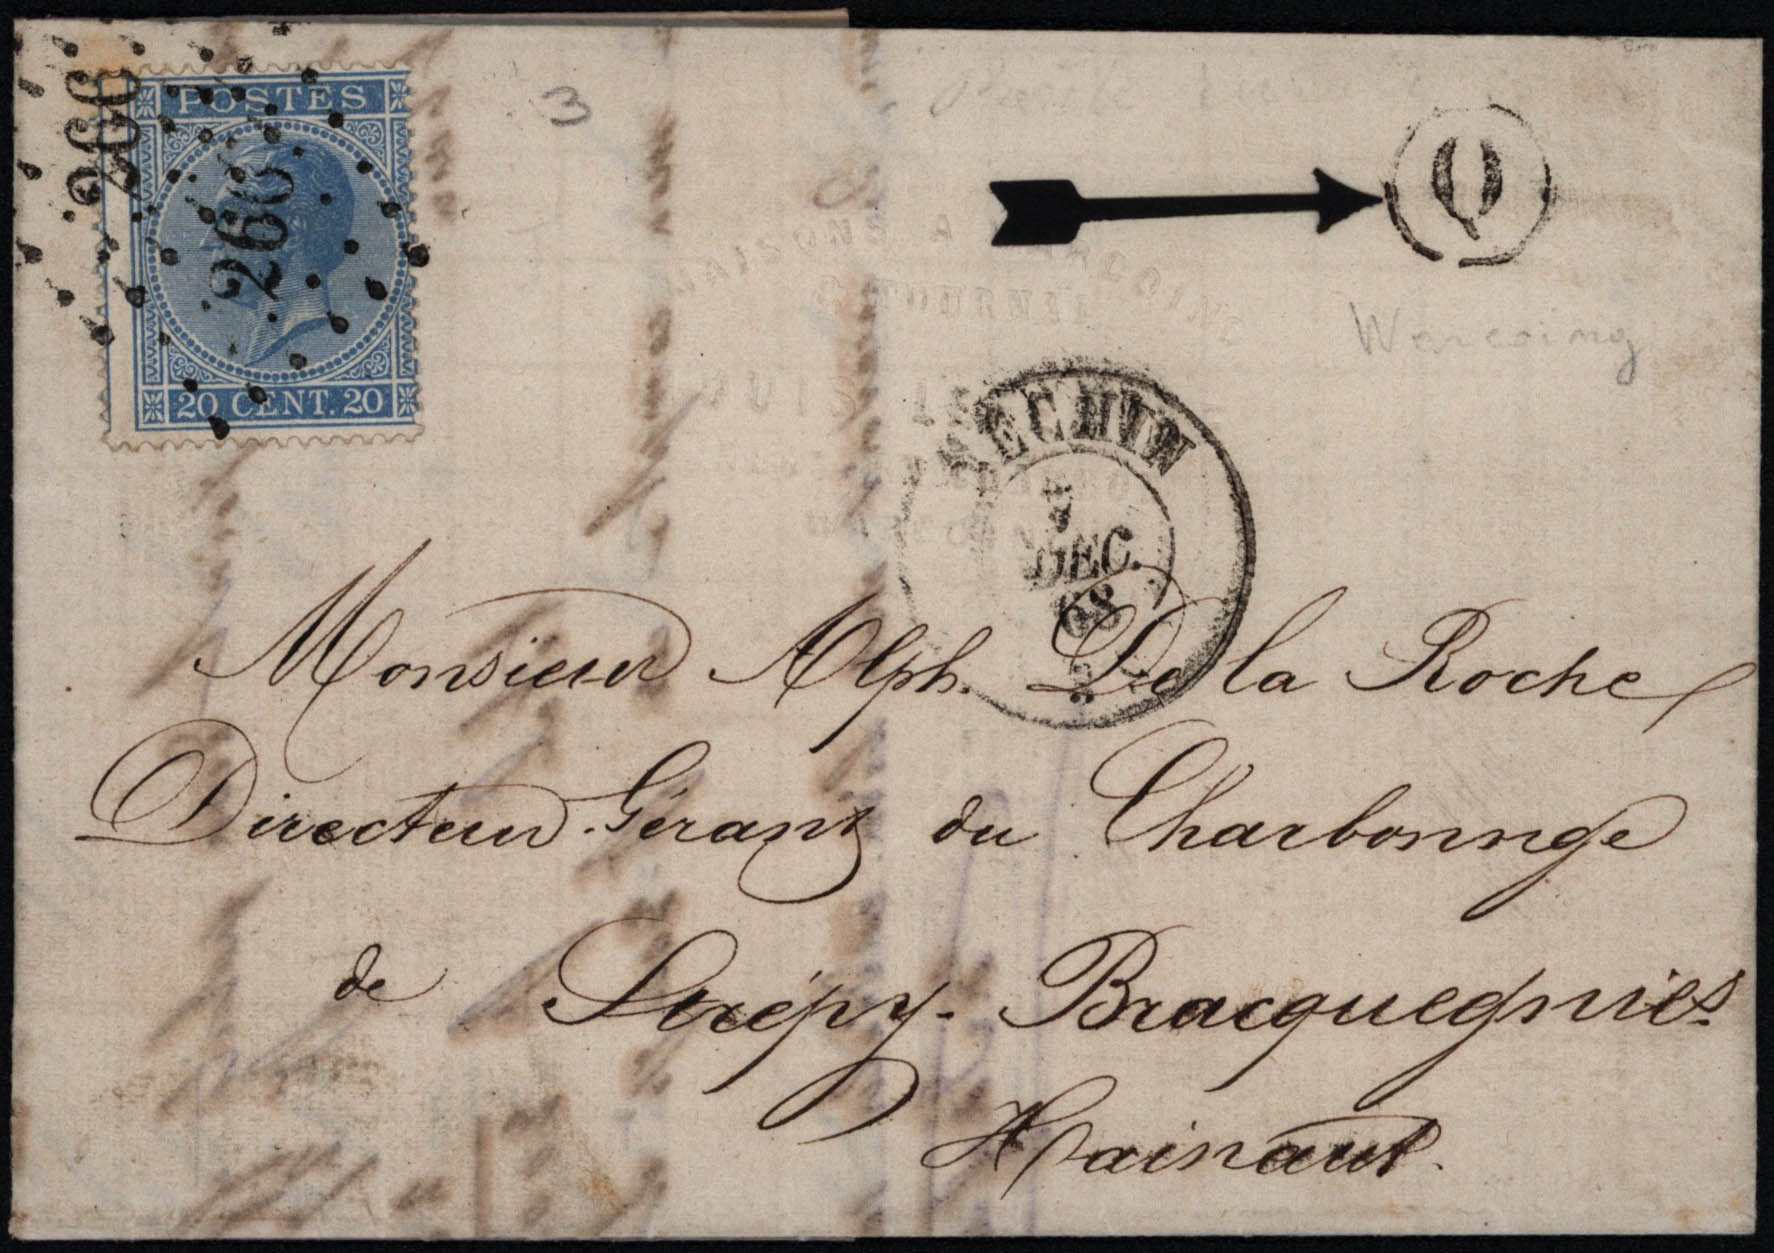 POSTES
266
266
20 CENT. 20
3
Q
Warcoing
NECHIN
DEC.
68
Monsieur Alph. De la Roche
Directeur-Gérant du Charbonnge
de Strépy-Bracquegnies
Hainaut.